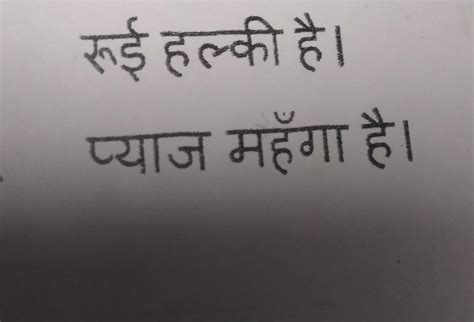 रूई हल्की है।
प्याज महँगा है।